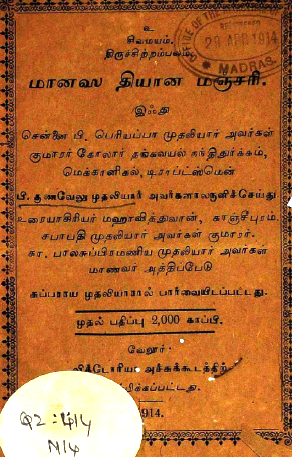 உ
சிவமயம்.
திருச்சிற்றம்பலம்.
OFFICE OF THE
29 APR 1914
MADRAS.
மானஸ தியான மஞ்சரி.
இஃது
சென்னை பி. பெரியப்பா முதலியார் அவர்கள்
குமாரர் கோலார் தங்கவயல் நந்திதுர்க்கம்,
மெக்கானிகல், டிராப்டஸ்மென்
பி. குணவேலு முதலியார் அவர்களாலருளிச்செய்து
உரையாசிரியர் மஹாவித்துவான், காஞ்சீபுரம்,
சபாபதி முதலியார் அவர்கள் குமாரர்
கா. பாலசுப்பிரமணிய முதலியார் அவர்கள்
மாணவர் அத்திப்பேடு
சுப்பராய முதலியாரால் பார்வையிடப்பட்டது.
முதல் பதிப்பு 2,000 காப்பி.
வேலூர்:
விக்டோரியா அச்சுக்கூடத்திற்
பதிப்பிக்கப்பட்டது.
1914.
Q2:414
N14